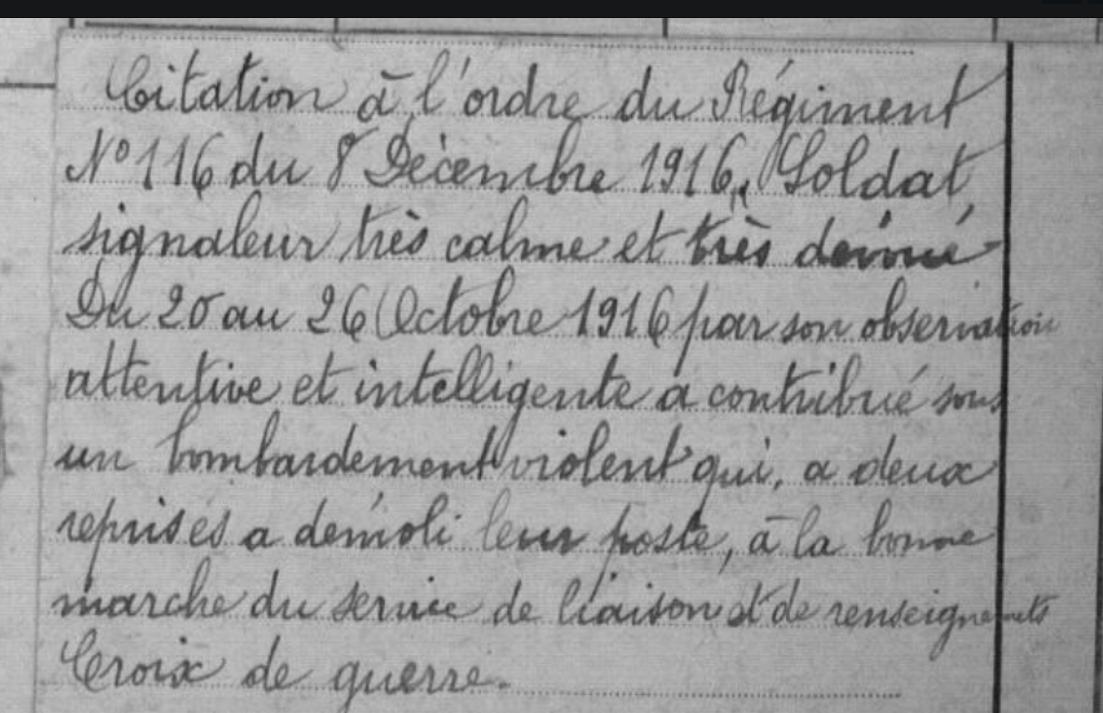 Citation à l'ordre du Régiment
N° 116 du 8 Décembre 1916, Soldat,
signaleur très calme et très dévoué
Du 20 au 26 Octobre 1916 par son observation
attentive et intelligente a contribué sous
un bombardement violent qui, a deux
reprises a démoli leur poste, à la bonne
marche du service de liaison et de renseignements
Croix de guerre.